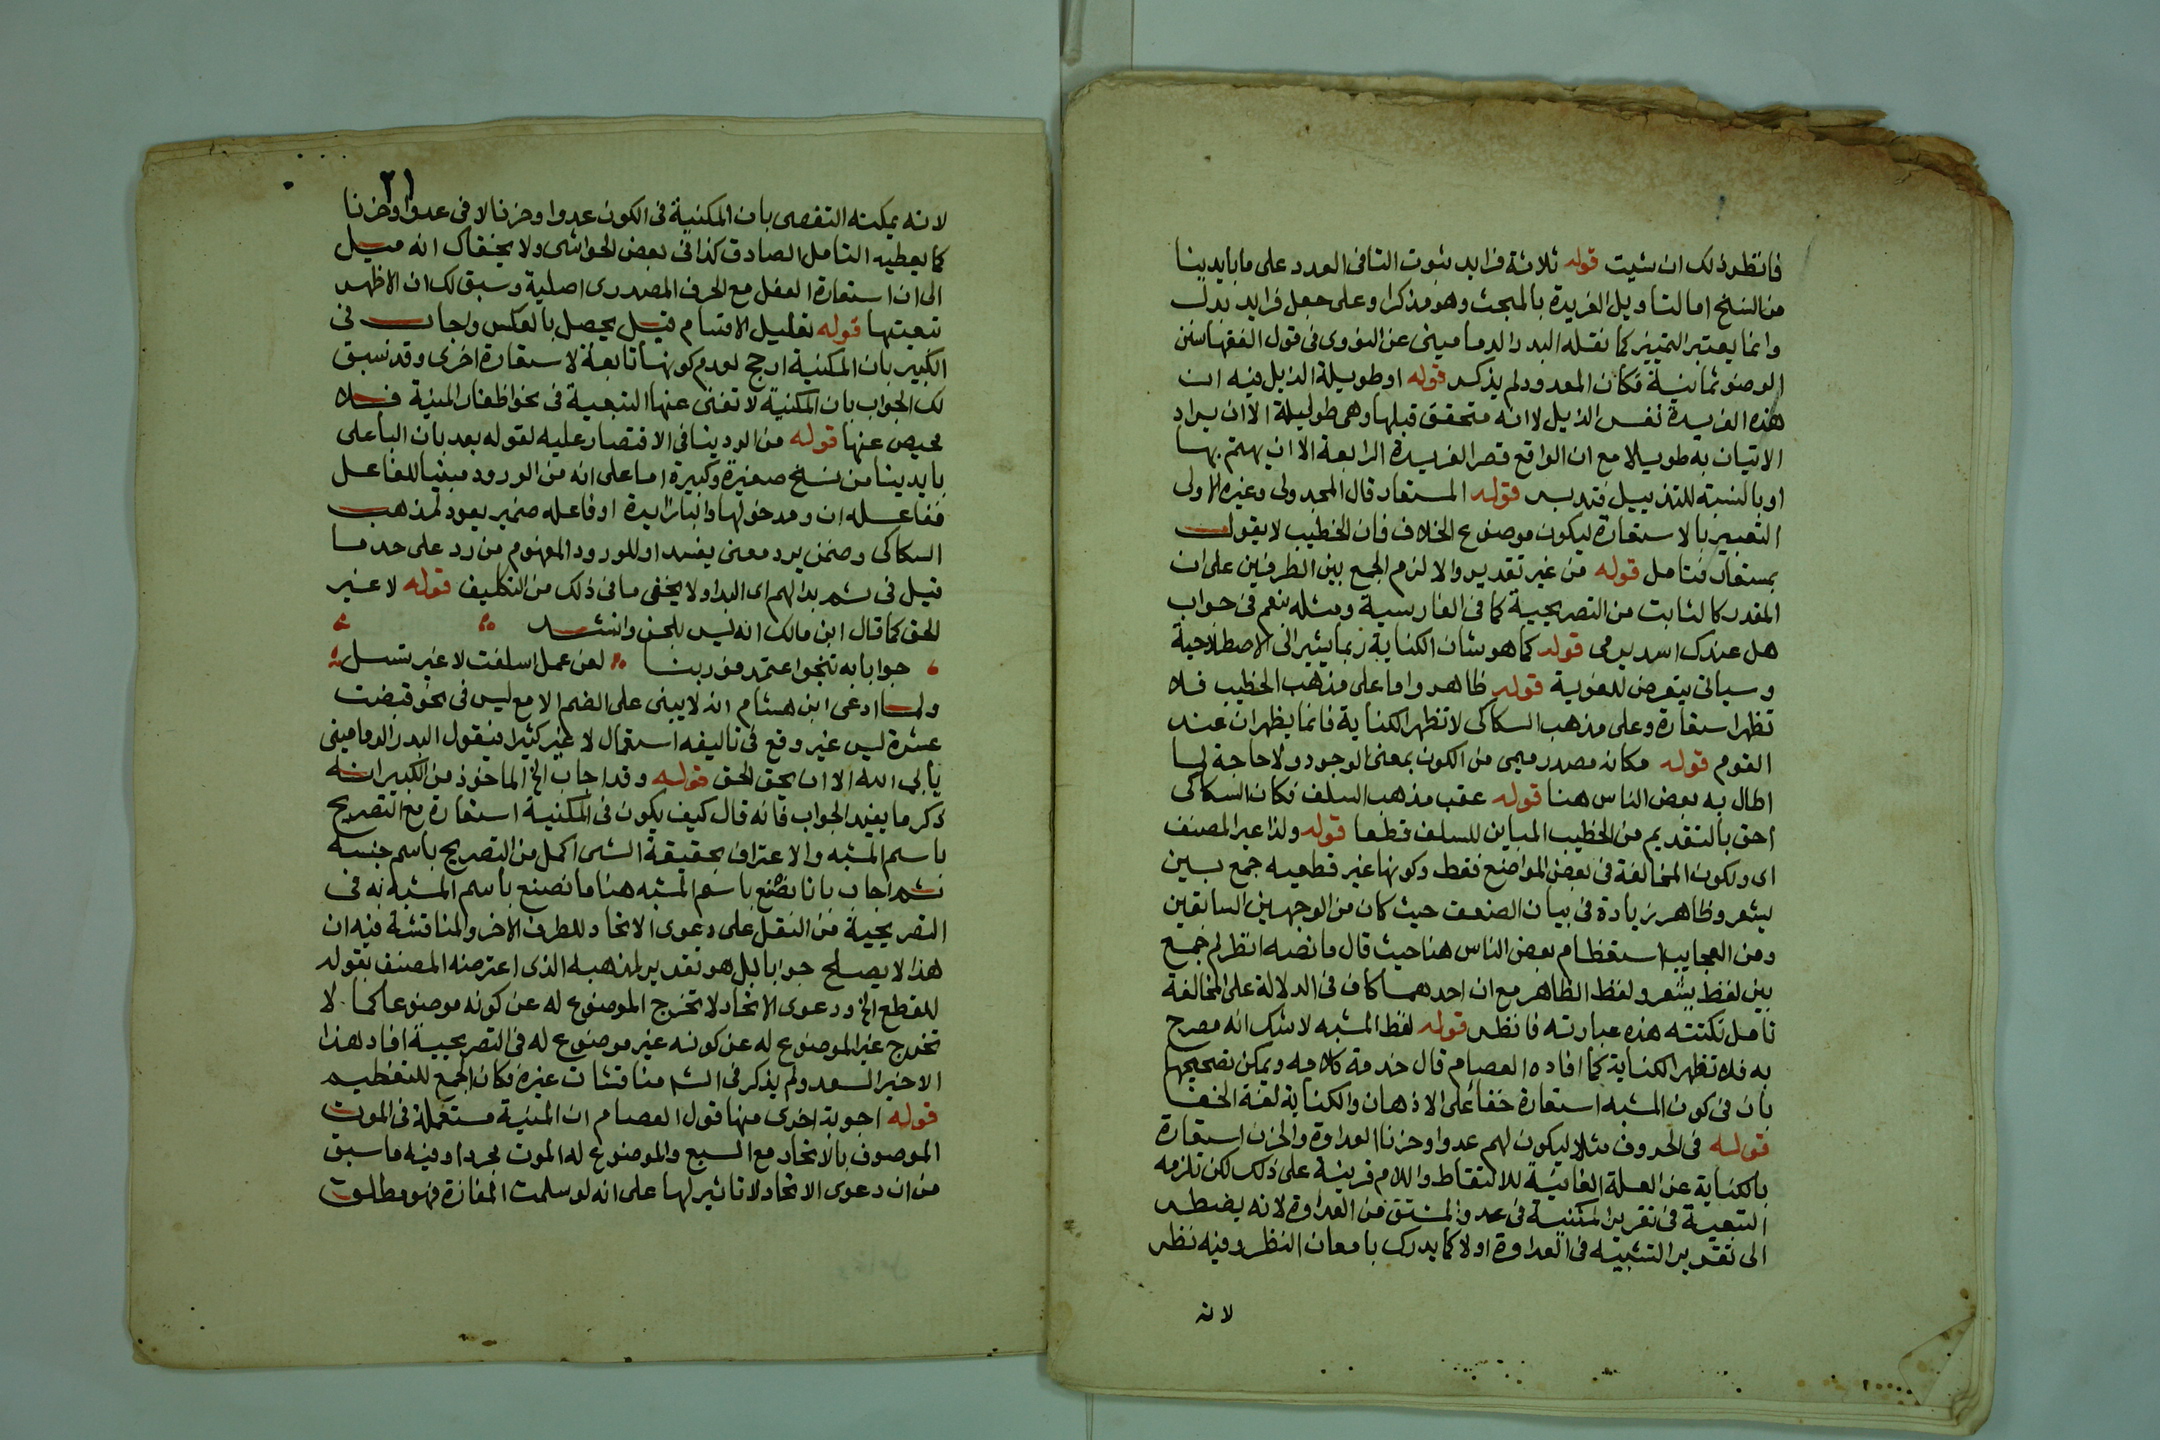 فانظر ذلك ان شيت قوله ثلاثة فرايد ثبوت التا في العدد على ما بايدينا
من النسخ اما لتاويل الفريدة بالمبحث وهو مذكر او على جعل فرايد بدل
وانما يعتبر التمييز كما نقله البدر الدماميني عن النووي في قول الفقها سنن
الوضوء ثمانية فكان المعدود لم يذكر قوله او طويلة الذيل فيه ان
هذه الفريدة نفس الذيل لا انه متحقق قبلها وهي طويلة الا ان يراد
الاتيان به طويلا مع ان الواقع قصر الفريدة الرابعة الا ان يهتم بها
او بالنسبة للتذييل فتدبر قوله المستعار قال المجدولي وغيره الاولى
التعبير بالاستعارة ليكون موضوع الخلاف فان الخطيب لا يقول
بمستعار فتامل قوله من غير تقدير والا لزم الجمع بين الطرفين على ان
المقدر كالثابت من التصريحية كما في الفارسية ومثله نعم في جواب
هل عندك اسد يرمي قوله كما هو شان الكناية ربما يشير الى الاصطلاحية
وسياتي يتعرض للغوية قوله ظاهر واما على مذهب الخطيب فلا
تظهر استعارة وعلى مذهب السكاكي لا تظهر الكناية فانما يظهران عند
القوم قوله مكانه مصدر ميمي من الكون بمعنى الوجود ولا حاجة لما
اطال به بعض الناس هنا قوله عقب مذهب السلف فكان السكاكي
احق بالتقديم من الخطيب المباين للسلف قطعا قوله ولذا عبر المصنف
اي ولكون المخالفة في بعض المواضع فقط وكونها غير قطعية جمع بين
يشعر وظاهر زيادة في بيان الضعف حيث كان من الوجهين السابقين
ومن العجايب استعظام بعض الناس هنا حيث قال ما نصه انظر لم جمع
بين لفظ يشعر ولفظ الظاهر مع ان احدهما كاف في الدلالة على المخالفة
تامل نكتته هذه عبارته فانظر قوله لفظ المشبه لا شك انه مصرح
به فلا تظهر الكناية كما افاده العصام قال خدمة كلامه ويمكن تصحيحها
بان في كون المشبه استعارة خفا على الاذهان والكناية لغة الخفا
قوله في الحروف مثلا ليكون لهم عدوا وحزنا العداوة والحزن استعارة
بالكناية عن العلة الغائية للالتقاط واللام قرينة على ذلك لكن تلزمه
التبعية في تقرير المكنية في عدو المشتق من العداوة لانه يضطر
الى تقدير التشبيه في العداوة اولا كما يدرك بامعان النظر وفيه نظر
لانه
٢١
لانه يمكنه التفصي بان المكنية في الكون عدوا وحزنا لا في عدوا وحزنا
كما يعطيه التامل الصادق كذا في بعض الحواشي ولا يخفاك انه ميل
الى ان استعارة الفعل مع الحرف المصدري اصلية وسبق لك ان الاظهر
تبعيتها قوله تقليل الاقسام قيل يحصل بالعكس واجاب في
الكبير بان المكنية ارجح لعدم كونها تابعة لاستعارة اخرى وقد نسبق
لك الجواب بان المكنية لا تغني عنها التبعية في نحو اظفار المنية فلا
محيص عنها قوله من الرد ينافي الاقتصار عليه لقوله بعد بان الباعلى
بايدينا من نسخ صغيرة وكبيرة اما على انه من الورود مبنيا للفاعل
ففاعله ان ومدخولها والبا زايدة او فاعله ضمير يعود لمذهب
السكاكي وضمن يرد معنى يفسد او للورود المفهوم من رد على حد ما
قيل في ثم بدا لهم اي البدا ولا يخفى ما في ذلك من التكليف قوله لا غير
الحق كما قال ابن مالك انه ليس بلحن وانشد
جوابا به تنجو اعتمد فوربنا لعن عمل اسلفت لا غير تسل
ولما ادعى ابن هشام انه لا يبنى على الضم الا مع ليس في نحو قبضت
عشرة ليس غير وقع في تاليفه استعمال لا غير كثيرا فيقول البدر الدماميني
يابى الله الا ان يحق الحق قوله وقد اجاب الخ الماخوذ من الكبير انه
ذكر ما يفيد الجواب فانه قال كيف يكون في المكنية استعارة مع التصريح
باسم المشبه والاعتراف بحقيقة الشي اكمل من التصريح باسم جنسه
ثم اجاب بانا نصنع باسم المشبه هنا ما نصنع باسم المشبه به في
التصريحية من النقل على دعوى الاتحاد للطرف الاخر والمناقشة فيه ان
هذا لا يصلح جوابا بل هو تقدير لمذهبه الذي اعترضه المصنف بقوله
للقطع الخ ودعوى الاتحاد لا تخرج الموضوع له عن كونه موضوعا كما لا
تخرج غير الموضوع له عن كونه غير موضوع له في التصريحية افاد هذا
الاخير السعد ولم يذكر في الشر مناقشات غيره فكان الجمع للتعظيم
قوله اجوبة اخرى منها قول العصام ان المنية مستعملة في الموت
الموصوف بالاتحاد مع السبع والموضوع له الموت مجردا وفيه ما سبق
من ان دعوى الاتحاد لا تاثير لها على انه لو سلمت المغازة فهو مطلوب